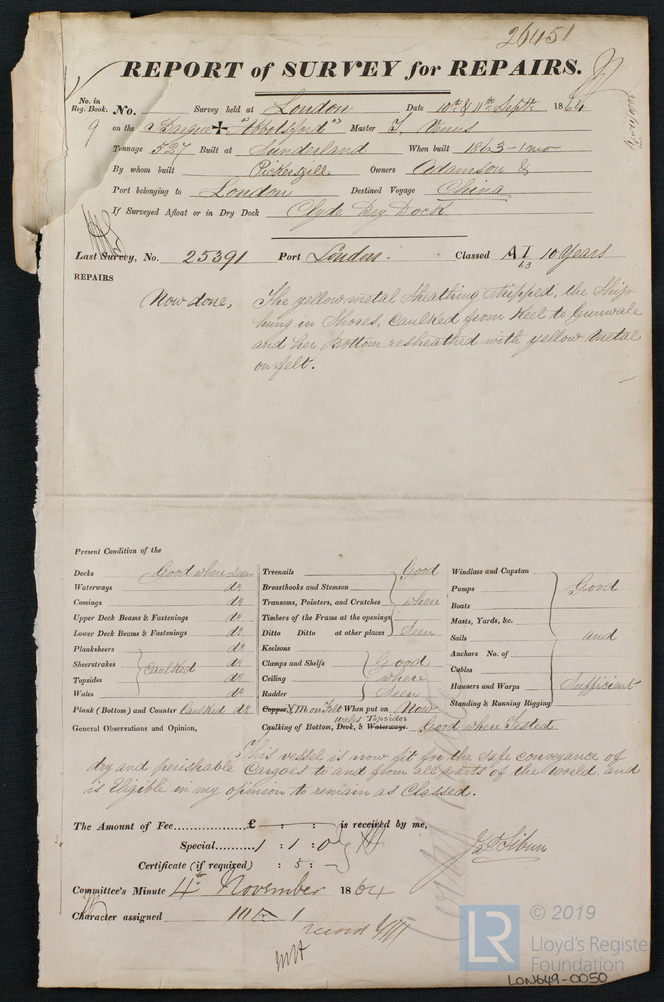 26451
REPORT of SURVEY for REPAIRS.
No. in Reg. Book. No. Survey held at London Date 10th & 11th Septr 1864
9 on the Barque "Abbotsford" Master T. Venus
Tonnage 527 Built at Sunderland When built 1863-1 mo
By whom built Pickersgill Owners Adamson &
Port belonging to London Destined Voyage China
If Surveyed Afloat or in Dry Dock Clyde Dry Dock
Last Survey, No. 25391 Port London. Classed A1 63 10 Years
REPAIRS
Now done, The yellow metal sheathing stripped, the Ship
hung in Shores, Caulked from Keel to Gunwale
and her Bottom resheathed with yellow metal
on felt.
Present Condition of the
Decks Good where seen
Waterways do
Comings do
Upper Deck Beams & Fastenings do
Lower Deck Beams & Fastenings do
Planksheers do
Sheerstrakes Caulked do
Topsides do
Wales do
Plank (Bottom) and Counter Caulked do
Treenails Good
Breasthooks and Stemson
Transoms, Pointers, and Crutches where
Timbers of the Frame at the openings
Ditto Ditto at other places Seen
Keelsons
Clamps and Shelfs Good
Ceiling where
Rudder Seen
Copper YM on Felt When put on Now
wales Topsides
Caulking of Bottom, Deck, & Waterways Good where Tested
Windlass and Capstan
Pumps Good
Boats
Masts, Yards, &c.
Sails and
Anchors No. of
Cables
Hawsers and Warps Sufficient
Standing & Running Rigging
General Observations and Opinion,
This vessel is now fit for the safe conveyance of
dry and perishable Cargoes to and from all parts of the world and
is Eligible in my opinion to remain as Classed.
The Amount of Fee £ : : is received by me,
Special 1 : 1 : 0
Certificate (if required) : 5 : -
Committee's Minute 4th November 1864
Character assigned 10 A 1
record
LR © 2019
Lloyd's Register
Foundation
LON649-0050